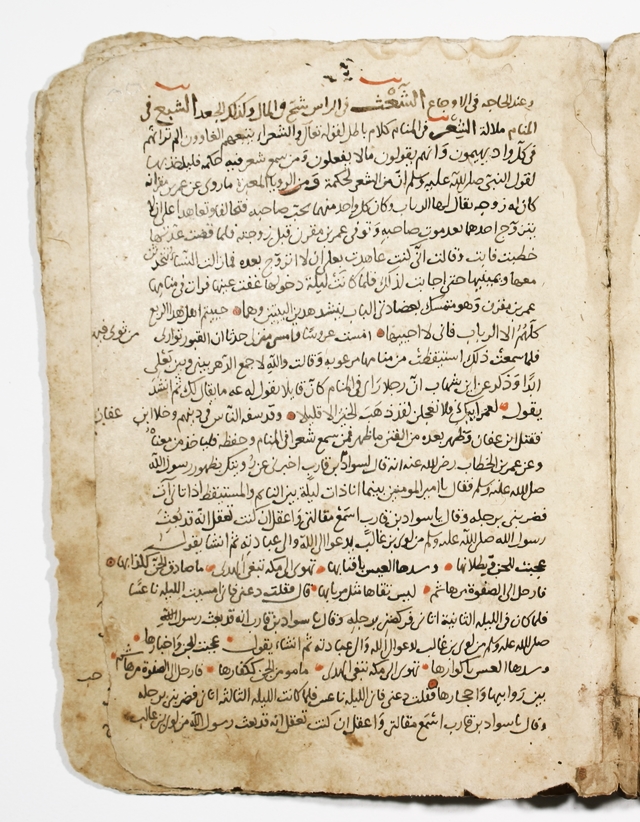 وعند الحاجه في الاوجاع الشعث في الراس شح في المال وكذلك الجعد الشبع في
المنام ملالة الشعر في المنام كلام باطل لقوله تعالى والشعراء يتبعهم الغاوون الم تر انهم
في كل واد يهيمون وانهم يقولون مالا يفعلون ومن سمع شعر فيه حكمه فليلفظ بها
لقول النبي صلى الله عليه وسلم ان من الشعر لحكمة ومن الرويا المعبره ما روى عن عمر بن مقرن انه
كان له زوجه يقال لها الرباب وكان كل واحد منهما يحب صاحبه فتحالفا وتعاهدا على ان لا
يتزوج احدهما بعد موت صاحبه وتوفى عمر بن مقرن قبل زوجته فلما قضت عدتها
خطبت فابت وقالت انى كنت عاهدت بعلى ان لا اتزوج بعده فما زالت النسا
معها وبميتها حتى اجابت لذلك فلما كانت ليلة دخولها غفت عينها فرات في منامها
عمر بن مقرن وهو متمسك بعضادتي الباب ينشد هذين البيتين وهما حييت اهل هذا الربع
كلهم الا الرباب فاني لا احييها امست عروسا وامسى منزلى حدثا ان القبور توارى من ثوى فيها
فلما سمعت ذلك استيقظت من منامها مرعوبه وقالت والله لا جمع الدهر بيني وبين بعلى
ابدا وذكر عن ابن شهاب ان رجلا راى في المنام كان قايلا يقول له عه ما يقال لك ثم انشد
يقول لعمر ابيك فلا تعجلن لقد ذهب الخير الا قليلا وقد سفه الناس في دينهم وخلا ابن عفان
فقتل ابن عفان وظهر بعده من الفتن ما ظهر فمن سمع شعرا في المنام وحفظه فلياخذ من معناه
وعن عمر بن الخطاب رضى الله عنه انه قال لسواد بن قارب اخبرنى عن بظهور رسول الله
صلى الله عليه وسلم فقال يا امير المومنين بينما انا ذات ليلة بين النايم والمستيقظ اذ اتانى آت
فضربنى برجله وقال يا سواد بن قارب اسمع مقالتى واعقل ان كنت تعقل انه قد بعث
رسول الله صلى الله عليه وسلم من لوى بن غالب يدعوا الى الله والى عبادته ثم انشا يقول
عجبت للجن وتطلابها وشدها العيس باقتابها تهوى الى مكة تبغى الهدى ما صادق الجن ككذابها
فارحل الى الصفوة من هاشم ليس قال فقلت دعنى فانى امسيت الليله ناعسا
فلما كان في الليله الثانية اتانى فركضنى برجله وقال يا سواد بن قارب انه قد بعث رسول الله
صلى الله عليه وسلم من لوى بن غالب يدعوا الى الله والى عبادته ثم انشاء يقول عجبت للجن واخبارها
وشدها العيس باكوارها تهوى الى مكة تبغى الهدى ما مومن الجن ككفارها فارحل الى الصفوة من هاشم
بين روابيها واحجارها فقلت دعنى فانى الليله ناعس فلما كانت الليله الثالثه اتانى فضربنى برجله
وقال يا سواد بن قارب اسمع مقالتى واعقل ان كنت تعقل انه قد بعث رسول الله من لوى بن غالب